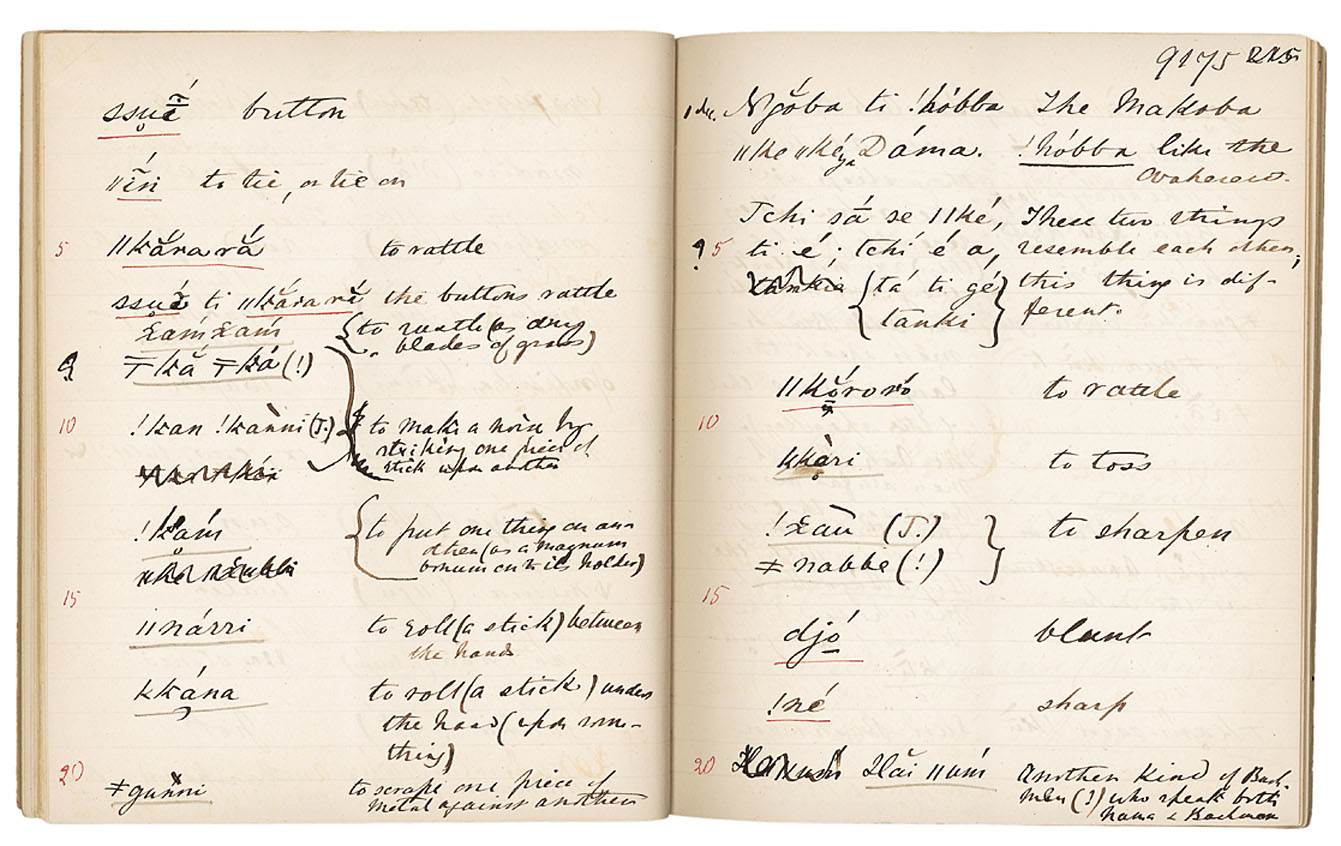 ssụé̄ button
ǁḗṅ to tie, or tie on
5 ǁkắrará to rattle
ssụé ti ǁkắrarĕ the buttons rattle
χaḿχaḿ {to rattle (as dry
blades of grass)
‡kắ ‡ká (!)
10 !kan !kaǹni (J.) to make a noise by
striking one piece of
stick upon another
!kaḿ {to put one thing on an-
other (as a magnum
bonum on to its holder)
15
ǁnárri to roll (a stick) between
the hands
kkána to roll (a stick) under
the hand (upon some-
thing)
20 ‡gunni to scrape one piece of
metal against another
9175
1 dec. Ngŏ́ba ti !hóbba The Makoba
ǁke ǁké Dáma. !hóbba like the
Ovaherero.
Tchi sá se ǁké, These two things
? 5 ti é; tchí é a, resemble each other;
{tá ti gé this thing is dif-
tanki} ferent.
ǁkŏ́roró to rattle
10
kkạ̀ri to toss
!χaù (J.) } to sharpen
‡nabbe (!)
15
djó blunt
!né sharp
20 χăi ǁuḿ another kind of Bush-
men (?) who speak both
Nama & Bushman